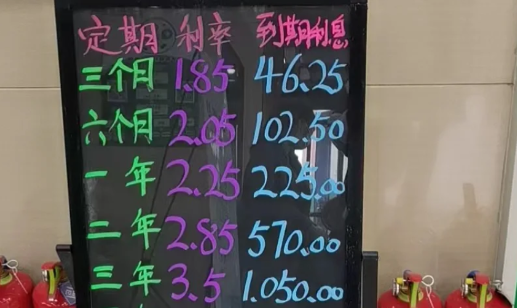 定期 利率 到期利息
三个月 1.85 46.25
六个月 2.05 102.50
一年 2.25 225.00
二年 2.85 570.00
三年 3.5 1.050.00